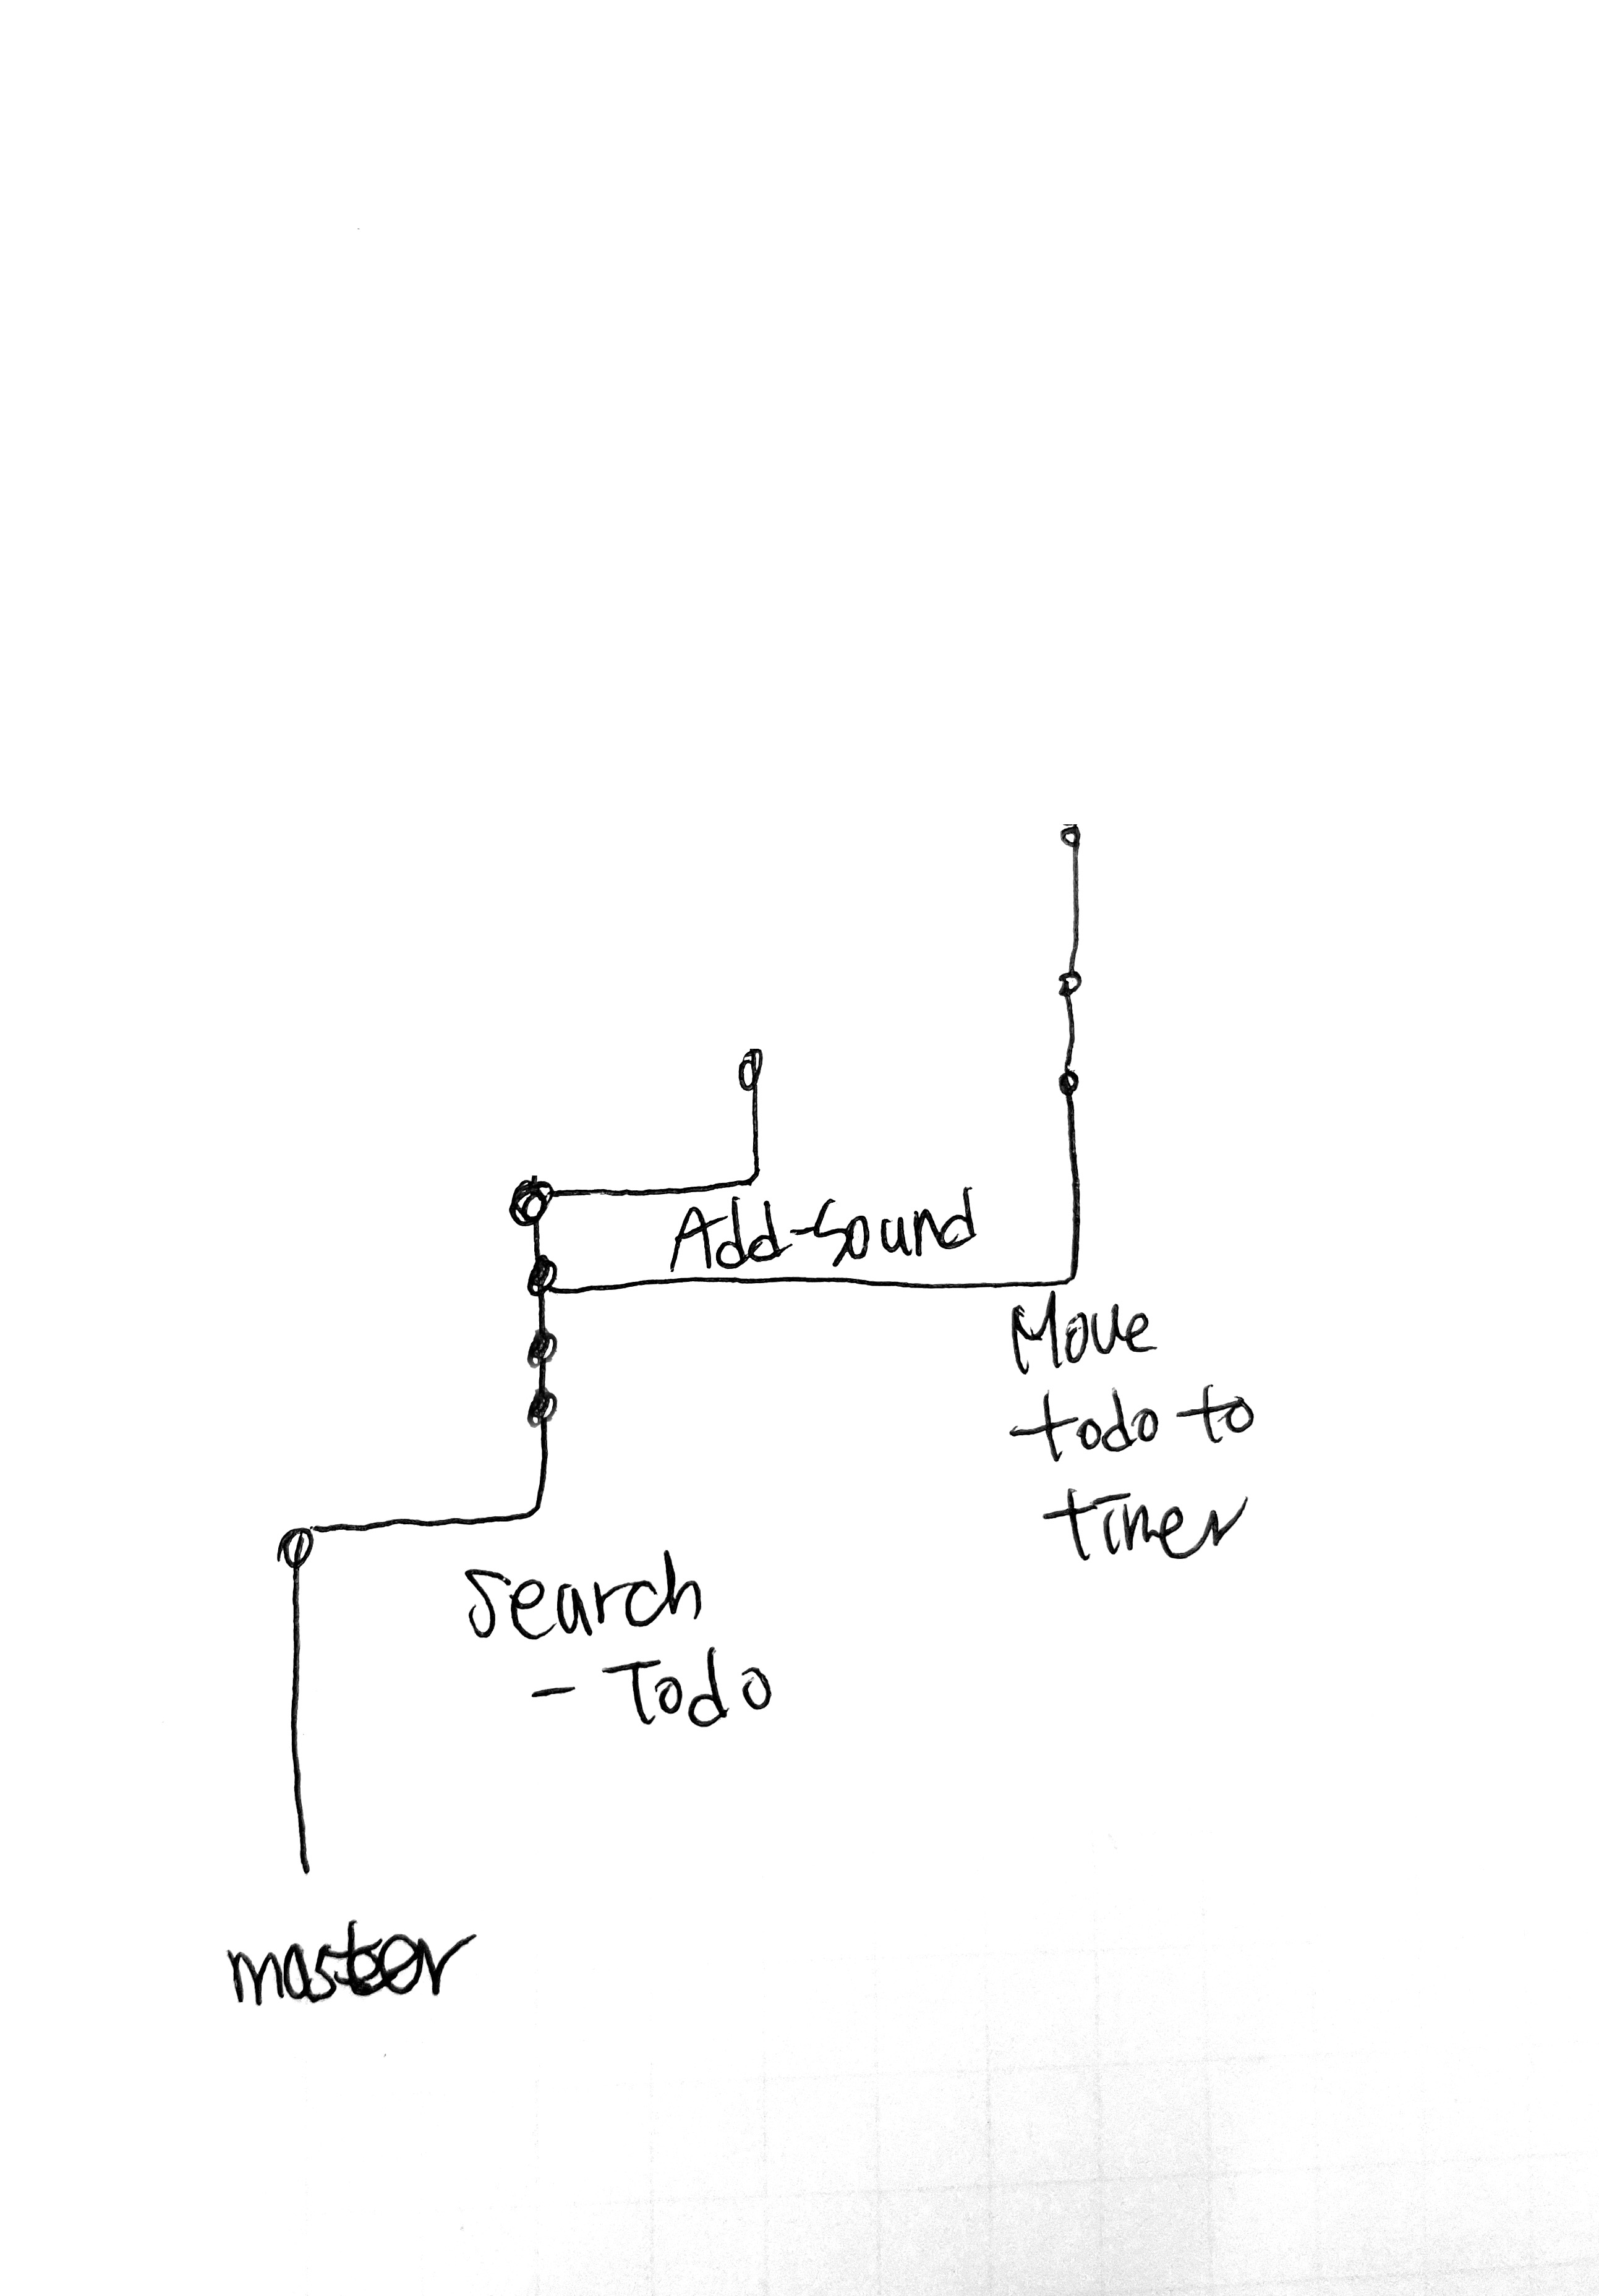 Add-Sound
Move
todo to
timer
Search
- Todo
master